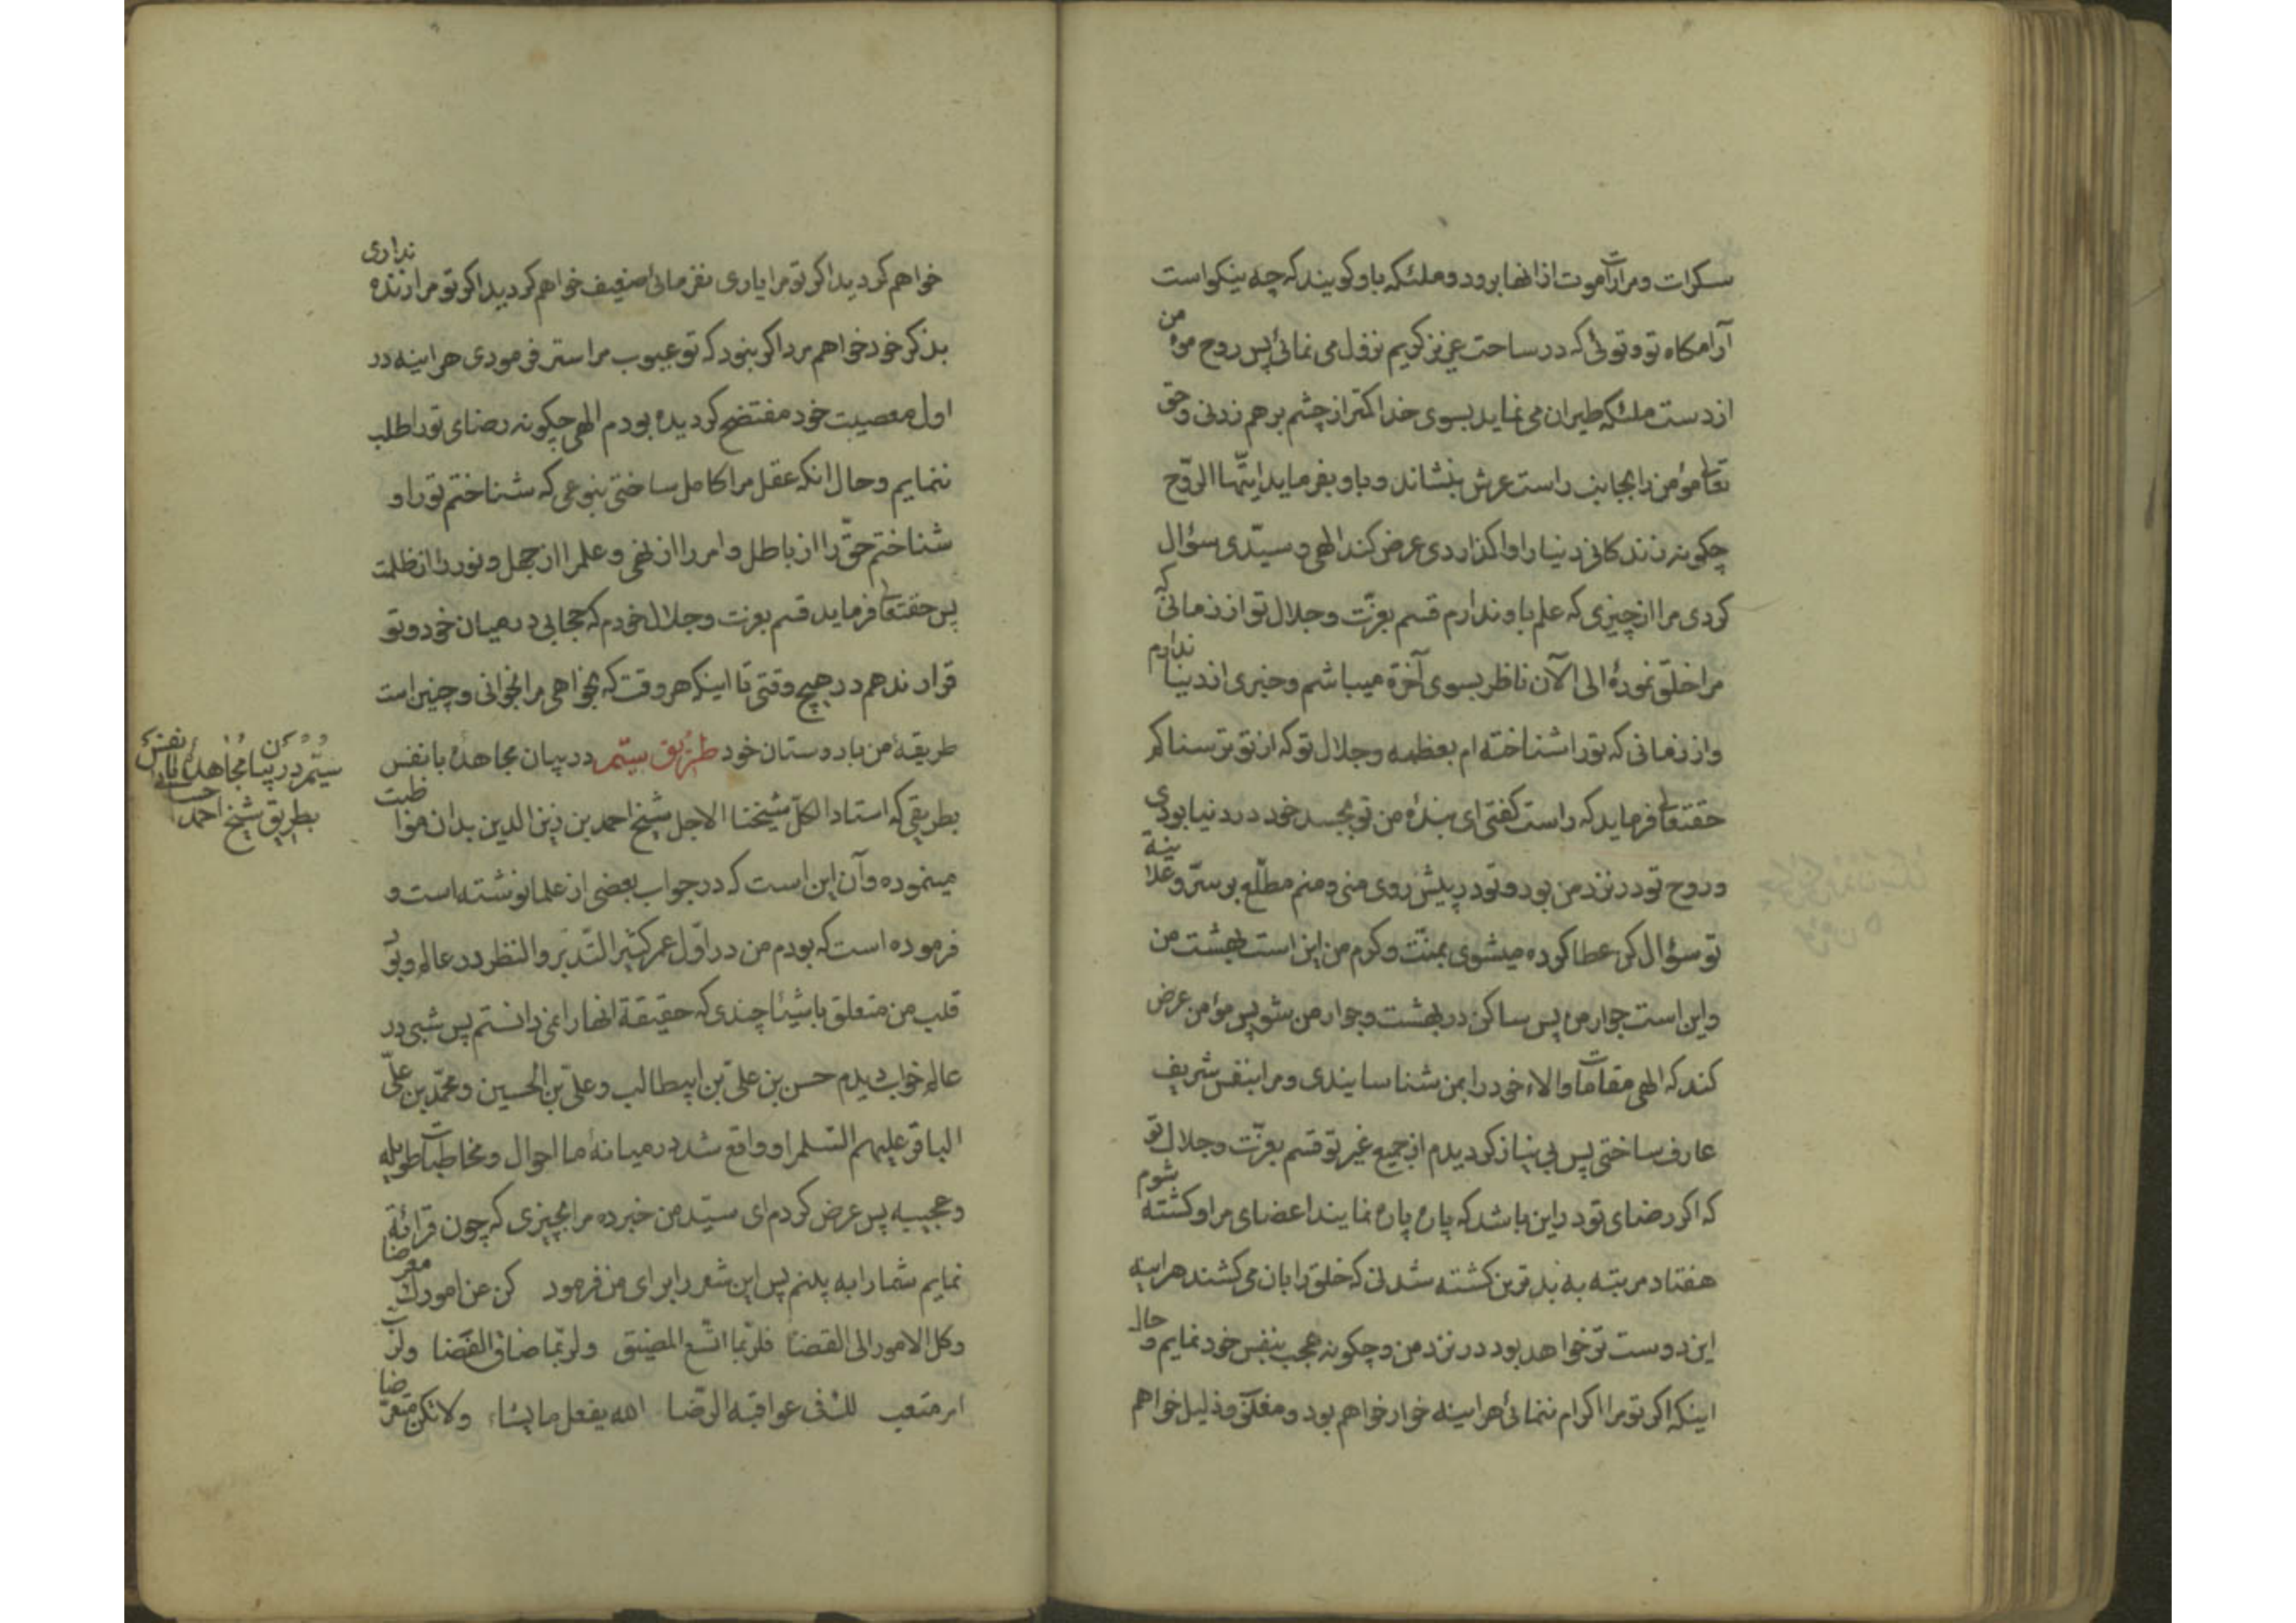 سکرات و مرارات موت از انها برود و ملئکه باو کویند که چه نیکو است
آرامکاه تو و توئی که در ساحت عزیز کریم نزول می نمائی پس روح مؤمن
از دست ملئکه طیران می نماید بسوی خدا کمتر از چشم برهم زدنی و حق
تعالی مؤمن را بجانب راست عرش بنشاند و باو بفرماید ایتها الروح
چکونه زندکانی دنیا را واکذاردی عرض کند الهی و سیّدی سؤال
کردی مرا از چیزی که علم باو ندارم قسم بعزّت و جلال تو از زمانی که
مرا خلق نمودهٔ الی الآن ناظر بسوی آخرة میباشم و خبری از دنیا ندارم
و از زمانی که تو را شناخته ام بعظمه و جلال تو که از تو ترسناکم
حقتعالی فرماید که راست کفتی ای بندهٔ من تو بجسد خود در دنیا بودی
و روح تو در نزد من بود و تو در پیش روی منی و منم مطلع بر سرّ و علانیة
تو سؤال کن عطا کرده میشوی بمنّت و کرم من این است بهشت من
و این است جوار من پس ساکن در بهشت و جوار من شو پس مؤمن عرض
کند که الهی مقامات و الاء خود را بمن شناسایندی و مرا بنفس شریف
عارف ساختی پس بی نیاز کردیدم از جمیع غیر تو قسم بعزّت و جلال تو
که اکر رضای تو در این باشد که پاره پاره نمایند اعضای مرا و کشته شوم
هفتاد مرتبه به بدترین کشته شدنی که خلق را بان می کشند هراینه
این دوست تر خواهد بود در نزد من و چکونه عجب بنفس خود نمایم و حال
اینکه اکر تو مرا اکرام ننمائی هراینه خوار خواهم بود و ذلیل خواهم
خواهم کردید اکر تو مرا یاری نفرمائی ضعیف خواهم کردید اکر تو مرا زنده نداری
بذکر خود خواهم مرد اکر نبود که تو عیوب مرا ستر فرمودی هراینه در
اول معصیت خود مفتضح کردیده بودم الهی چکونه رضای تو را طلب
ننمایم و حال انکه عقل مرا کامل ساختی بنوعی که شناختم تو را و
شناختم حقّ را از باطل و امر را از نهی و علم را از جهل و نور را از ظلمت
پس حقتعالی فرماید قسم بعزت و جلال خودم که حجابی در میان خود و تو
قرار ندهم در هیچ وقتی تا اینکه هر وقت که بخواهی مرا بخوانی و چنین است
طریقهٔ من با دوستان خود طریق بیستم در بیان مجاهدهٔ با نفس
بطریقی که استاد الکلّ شیخنا الاجل شیخ احمد بن زین الدین بدان مواظبت
مینموده و آن این است که در جواب بعضی از علما نوشته است و
فرموده است که بودم من در اوّل عمر کثیر التّدبّر و النظر در عالم و بود
قلب من متعلق باشیئا چندی که حقیقة انها را نمی دانستم پس شبی در
عالم خواب دیدم حسن بن علیّ بن ابیطالب و علیّ بن الحسین و محمّد بن علیّ
الباقر علیهم السّلم را و واقع شد در میانهٔ ما احوال و مخاطبات طویله
و عجیبه پس عرض کردم ای سیّد من خبر ده مرا بچیزی که چون قرائة
نمایم شما را به بینم پس این شعر را برای من فرمود کن عن امورک معرضا
و کل الامور الی القضا فلربما اتّسع المضیق و لربّما ضاق الفضا و لربّ
امر متعب لک فی عواقبه الرّضا الله یفعل ما یشاء و لا تکن متعرّضا
بیستم در بیان مجاهدهٔ با نفس
بطریق شیخ احمد